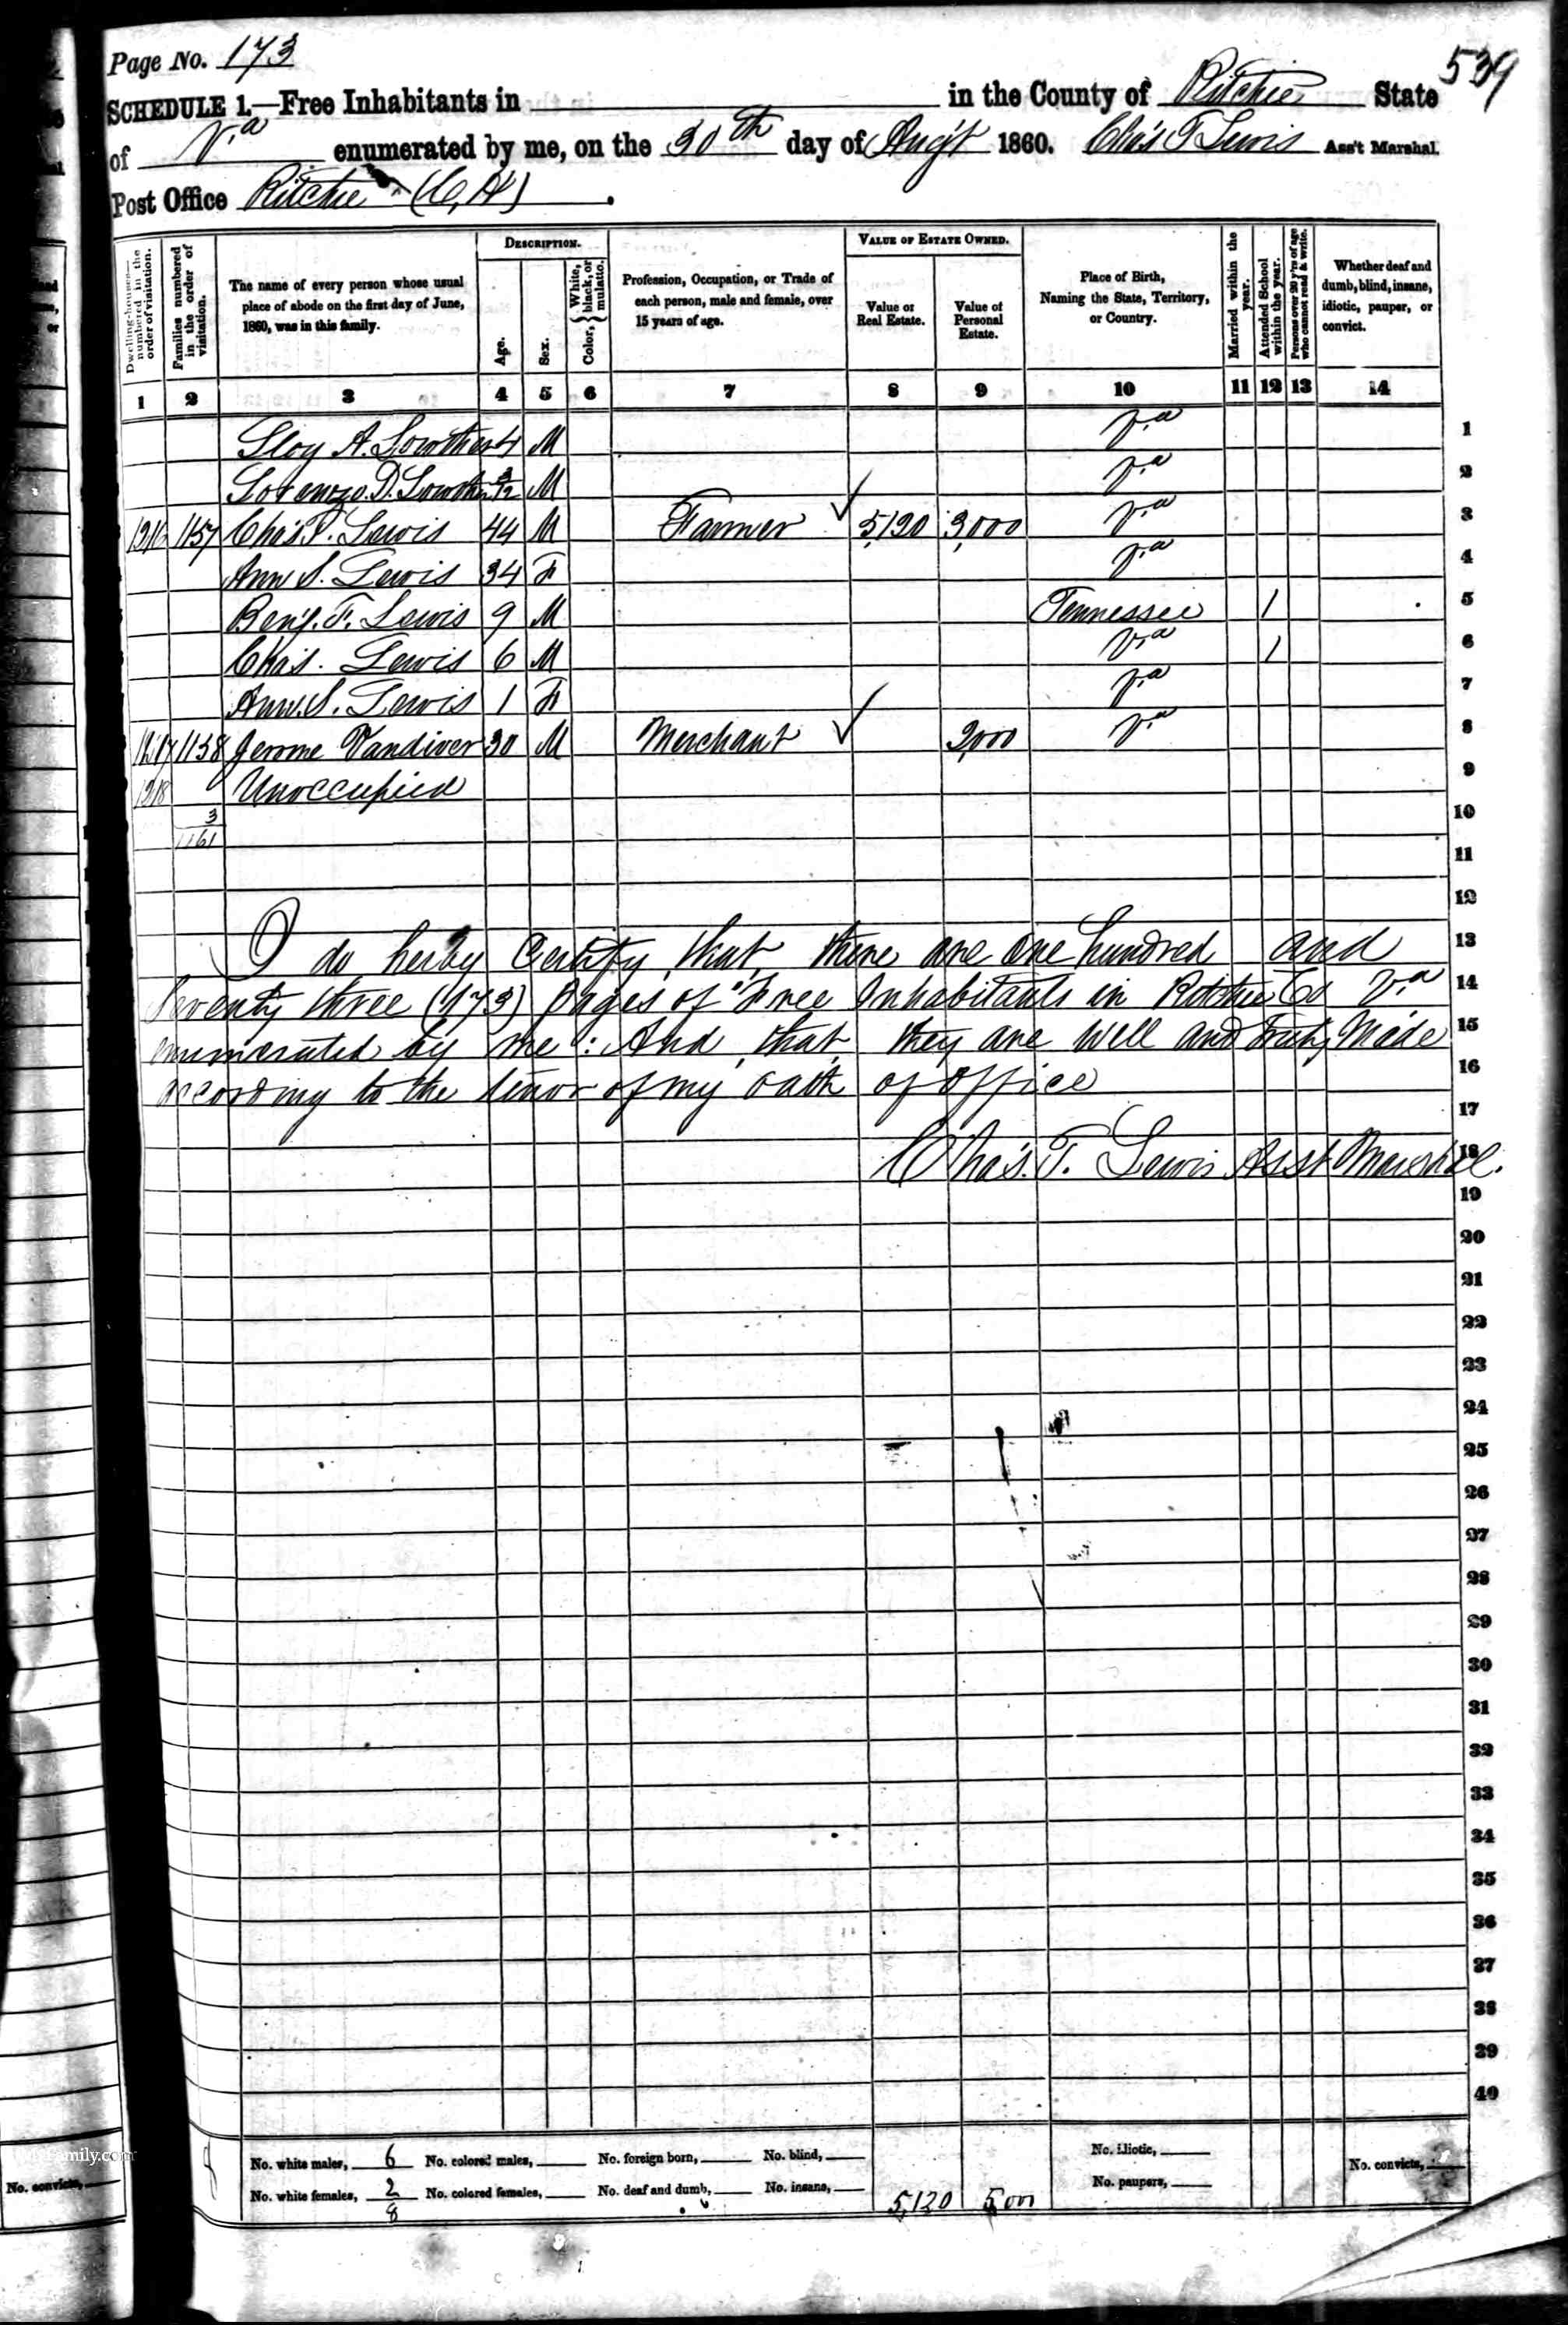 Page No. 173
539
SCHEDULE 1.—Free Inhabitants in in the County of Ritchie State
of Va enumerated by me, on the 30th day of Aug't 1860. Cha's T Lewis Ass't Marshal.
Post Office Ritchie (C,H)
Dwelling-houses—numbered in the order of visitation.
Families numbered in the order of visitation.
The name of every person whose usual place of abode on the first day of June, 1860, was in this family.
DESCRIPTION.
Age.
Sex.
Color, { White, black, or mulatto.
Profession, Occupation, or Trade of each person, male and female, over 15 years of age.
VALUE OF ESTATE OWNED.
Value of Real Estate.
Value of Personal Estate.
Place of Birth, Naming the State, Territory, or Country.
Married within the year.
Attended School within the year.
Persons over 20 y'rs of age who cannot read & write.
Whether deaf and dumb, blind, insane, idiotic, pauper, or convict.
1 2 3 4 5 6 7 8 9 10 11 12 13 14
A. Lowther 4 M Va 1
Lorenzo D. Lowther M Va 2
1216 1157 Cha's T. Lewis 44 M Farmer 5,120 3,000 Va 3
Ann S. Lewis 34 F Va 4
Benj. F. Lewis 9 M Tennessee 1 5
Cha's. Lewis 6 M Va 1 6
Ann. S. Lewis 1 F Va 7
1217 1158 Jerome Vandiver 30 M Merchant 2,000 Va 8
1218 Unoccupied 9
3 10
1161 11
12
I do herby Certify that there are one hundred and 13
Seventy three (173) pages of Free Inhabitants in Ritchie Co Va 14
enumerated by me: And that they are Well and Truly Made 15
according to the tenor of my oath of office 16
17
Cha's. T. Lewis Asst Marshal. 18
19
20
21
22
23
24
25
26
27
28
29
30
31
32
33
34
35
36
37
38
39
40
No. white males, 6 No. colored males, No. foreign born, No. blind, No. idiotic, No. convicts,
No. white females, 2 No. colored females, No. deaf and dumb, No. insane, 5,120 5,000 No. paupers,
8
family.com
No. convicts,